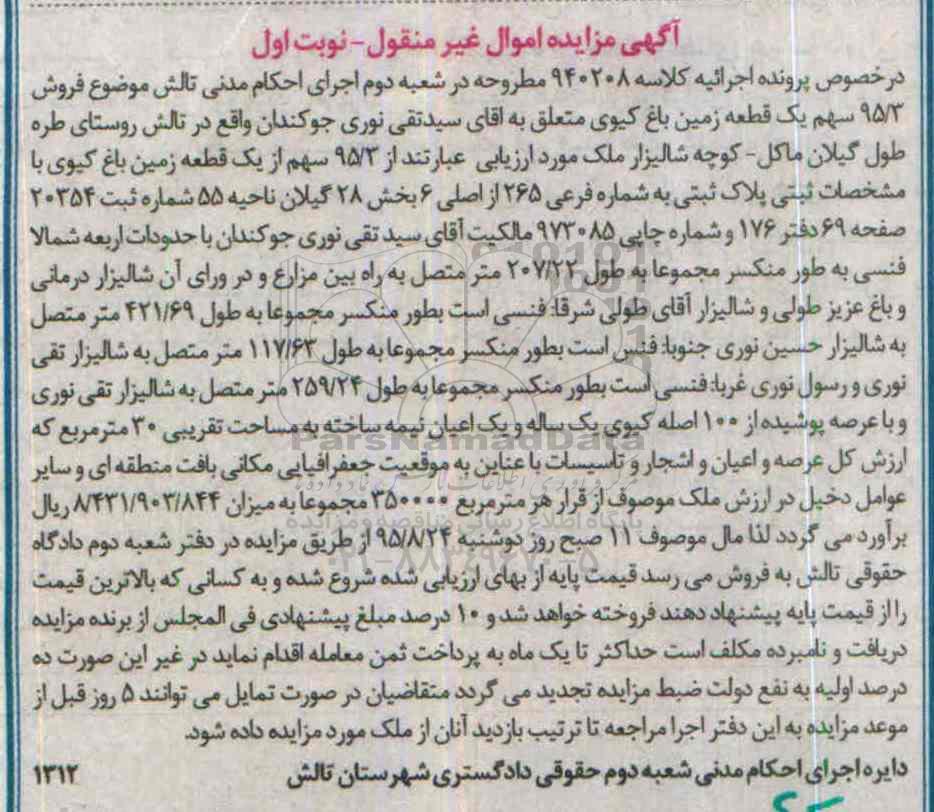 آگهی مزایده اموال غیر منقول - نوبت اول
درخصوص پرونده اجرائیه کلاسه ۹۴۰۲۰۸ مطروحه در شعبه دوم اجرای احکام مدنی تالش موضوع فروش
۹۵/۳ سهم یک قطعه زمین باغ کیوی متعلق به اقای سیدتقی نوری جوکندان واقع در تالش روستای طره
طول گیلان ماکل- کوچه شالیزار ملک مورد ارزیابی عبارتند از ۹۵/۳ سهم از یک قطعه زمین باغ کیوی با
مشخصات ثبتی پلاک ثبتی به شماره فرعی ۲۶۵ از اصلی ۶ بخش ۲۸ گیلان ناحیه ۵۵ شماره ثبت ۲۰۳۵۴
صفحه ۶۹ دفتر ۱۷۶ و شماره چاپی ۹۷۳۰۸۵ مالکیت آقای سید تقی نوری جوکندان با حدودات اربعه شمالا
فنسی به طور منکسر مجموعا به طول ۲۰۷/۲۲ متر متصل به راه بین مزارع و در ورای آن شالیزار درمانی
و باغ عزیز طولی و شالیزار آقای طولی شرقا: فنسی است بطور منکسر مجموعا به طول ۴۲۱/۶۹ متر متصل
به شالیزار حسین نوری جنوبا: فنس است بطور منکسر مجموعا به طول ۱۱۷/۶۳ متر متصل به شالیزار تقی
نوری و رسول نوری غربا: فنسی است بطور منکسر مجموعا به طول ۲۵۹/۲۴ متر متصل به شالیزار تقی نوری
و با عرصه پوشیده از ۱۰۰ اصله کیوی یک ساله و یک اعیان نیمه ساخته به مساحت تقریبی ۳۰ مترمربع که
ارزش کل عرصه و اعیان و اشجار و تاسیسات با عناین به موقعیت جعفرافیایی مکانی بافت منطقه ای و سایر
عوامل دخیل در ارزش ملک موصوف از قرار هر مترمربع ۳۵۰۰۰۰ مجموعا به میزان ۸/۴۳۱/۹۰۳/۸۴۴ ریال
برآورد می گردد لذا مال موصوف ۱۱ صبح روز دوشنبه ۹۵/۸/۲۴ از طریق مزایده در دفتر شعبه دوم دادگاه
حقوقی تالش به فروش می رسد قیمت پایه از بهای ارزیابی شده شروع شده و به کسانی که بالاترین قیمت
را از قیمت پایه پیشنهاد دهند فروخته خواهد شد و ۱۰ درصد مبلغ پیشنهادی فی المجلس از برنده مزایده
دریافت و نامبرده مکلف است حداکثر تا یک ماه به پرداخت ثمن معامله اقدام نماید در غیر این صورت ده
درصد اولیه به نفع دولت ضبط مزایده تجدید می گردد متقاضیان در صورت تمایل می توانند ۵ روز قبل از
موعد مزایده به این دفتر اجرا مراجعه تا ترتیب بازدید آنان از ملک مورد مزایده داده شود.
دایره اجرای احکام مدنی شعبه دوم حقوقی دادگستری شهرستان تالش ۱۳۱۲
ParsNamadData
پایگاه اطلاع رسانی مناقصه و مزایده